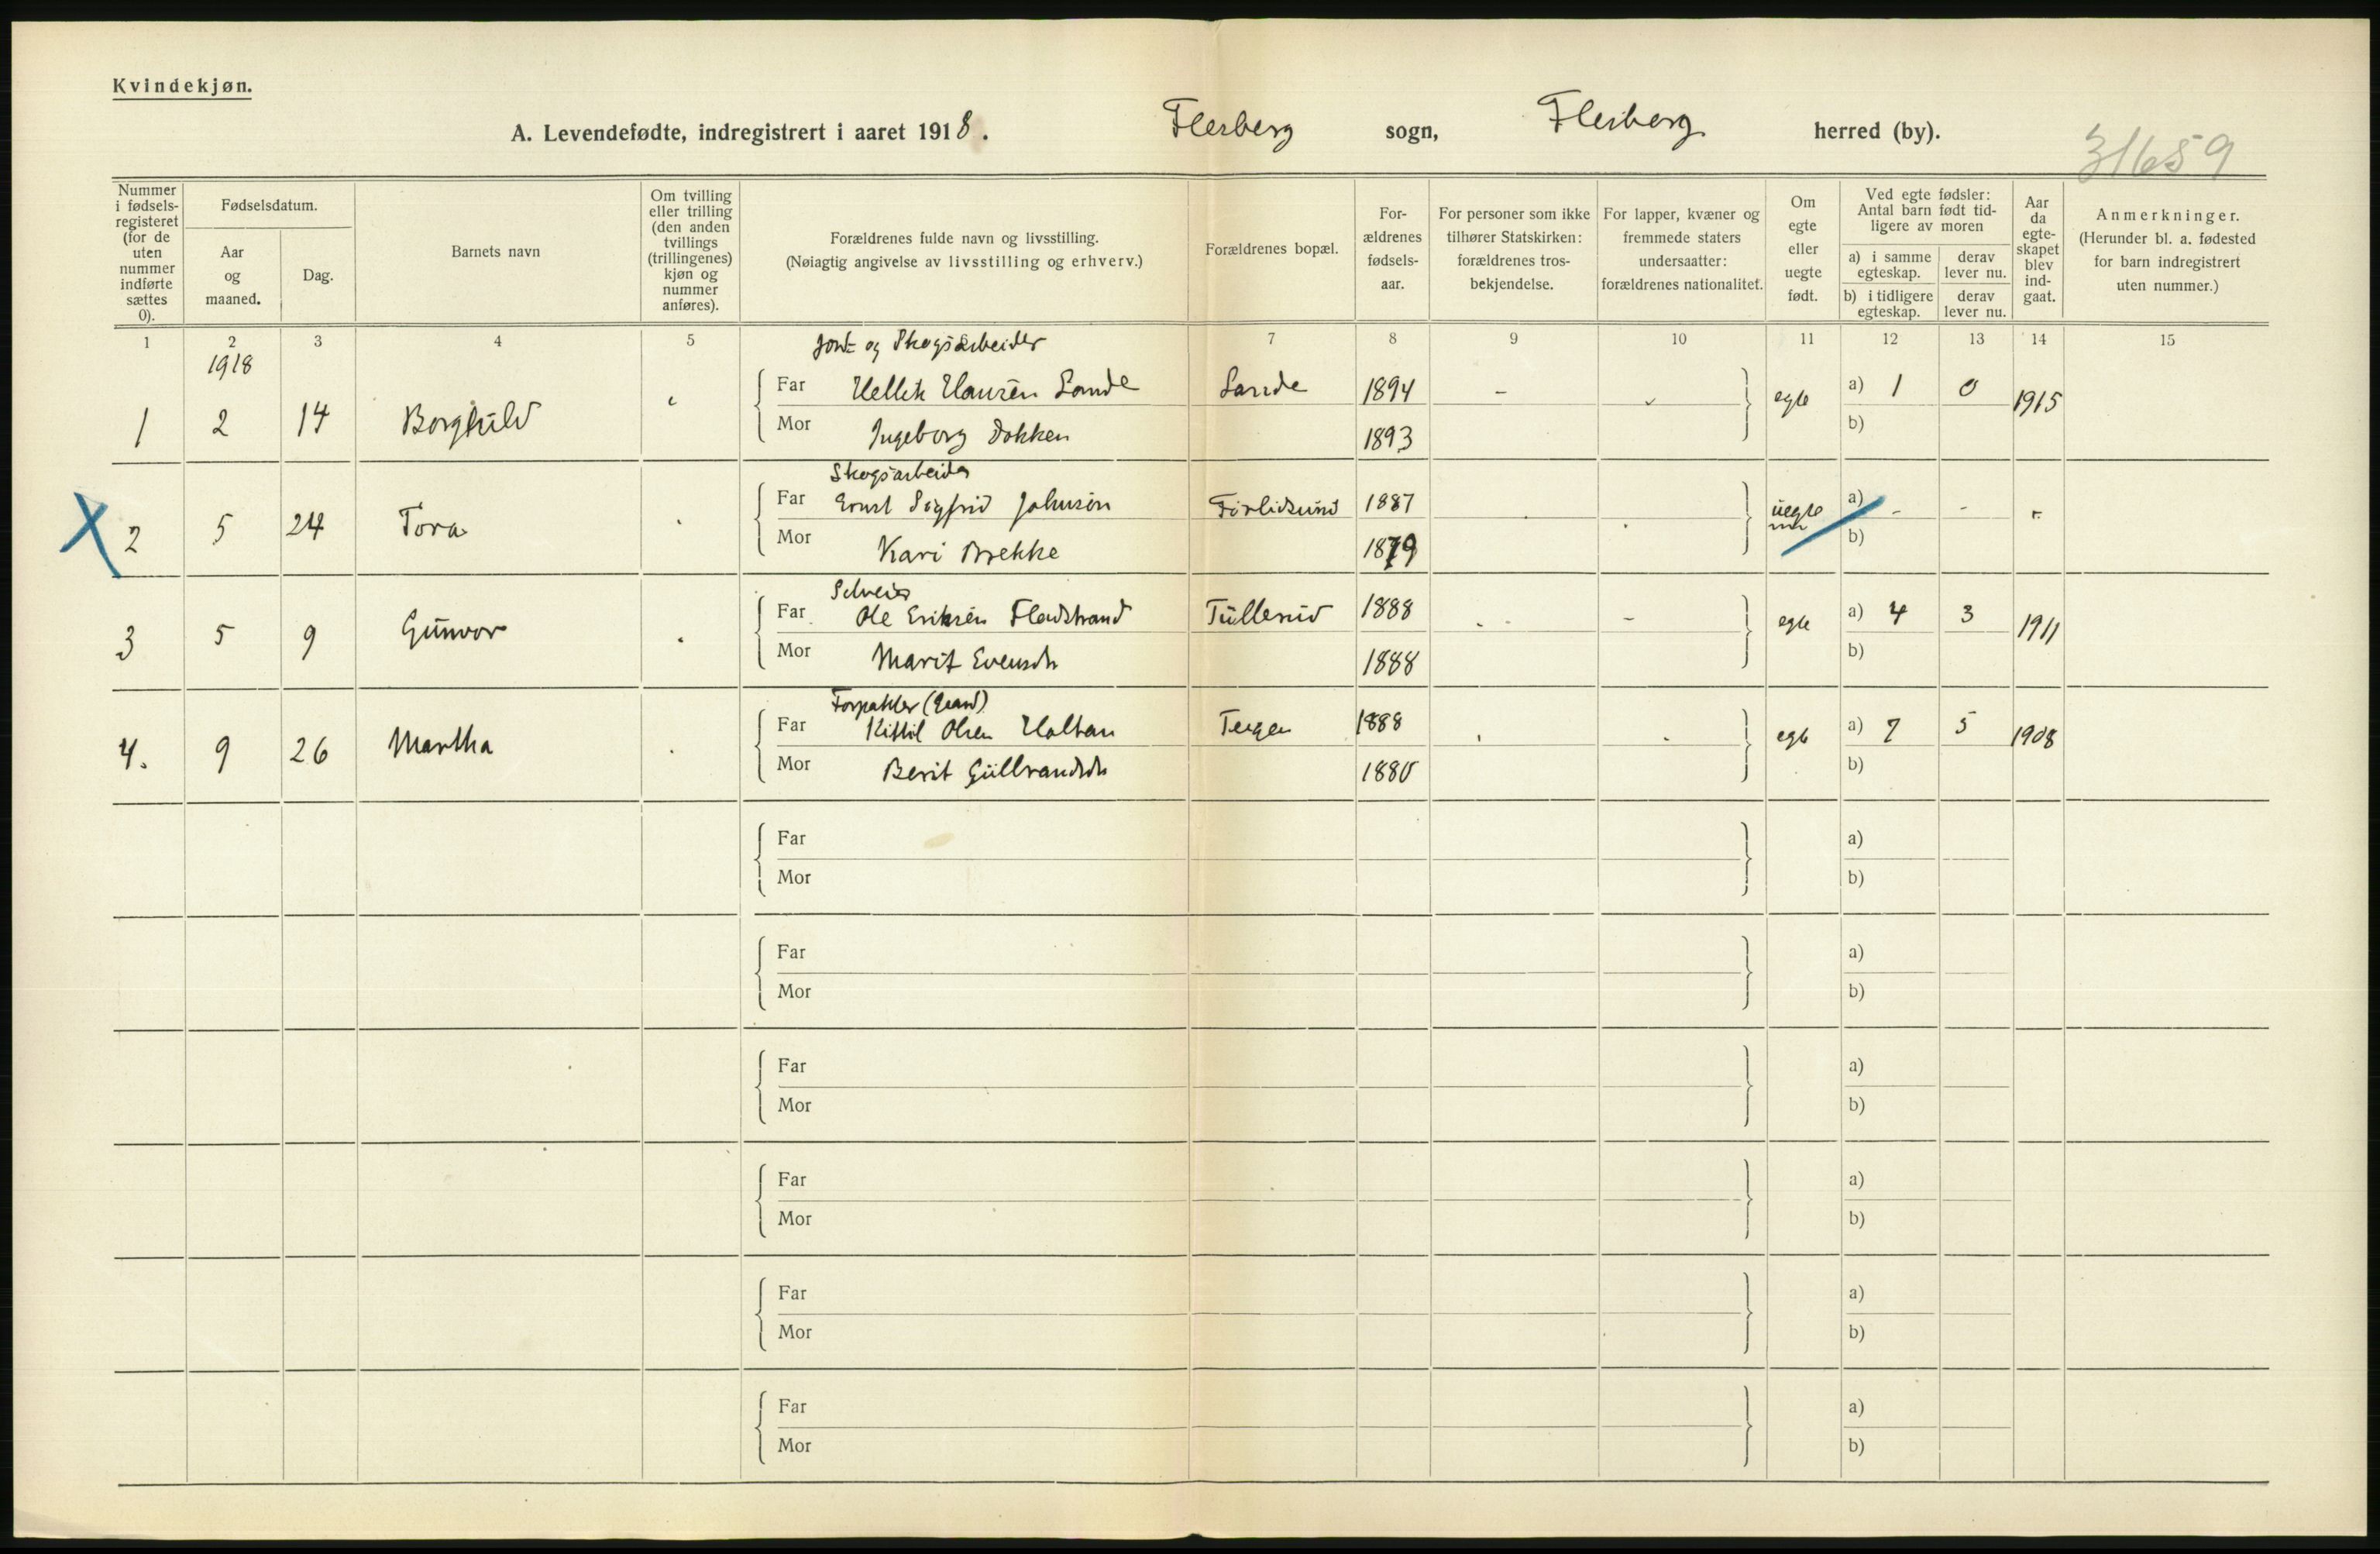 Kvindekjøn.
A. Levendefødte, indregistrert i aaret 1918. Flesberg sogn, Flesberg herred (by).
31659
Nummer i fødsels-registeret (for de uten nummer indførte sættes 0).
Fødselsdatum.
Aar og maaned.
Dag.
Barnets navn
Om tvilling eller trilling (den anden tvillings (trillingenes) kjøn og nummer anføres).
Forældrenes fulde navn og livsstilling.
(Nøiagtig angivelse av livsstilling og erhverv.)
Forældrenes bopæl.
For-ældrenes fødsels-aar.
For personer som ikke tilhører Statskirken: forældrenes tros-bekjendelse.
For lapper, kvæner og fremmede staters undersaatter: forældrenes nationalitet.
Om egte eller uegte født.
Ved egte fødsler: Antal barn født tid-ligere av moren
a) i samme egteskap.
derav lever nu.
b) i tidligere egteskap.
derav lever nu.
Aar da egte-skapet blev ind-gaat.
Anmerkninger.
(Herunder bl. a. fødested for barn indregistrert uten nummer.)
1 2 3 4 5 7 8 9 10 11 12 13 14 15
1918
Jord- og Skogsarbeider
Far Hellik Hansen Lande Lande 1894 - a) 1 0
1 2 14 Borghild egte 1915
Mor Ingeborg Dokken 1893 b)
Skogsarbeider
Far Ernst Sigfrid Johnsen 1887 a) - -
X 2 5 24 Tora uegte
Mor Kari Brekke 1879 b)
Selveier
Far Ole Eriksen Fladstrand Tullerud 1888 - a) 4 3
3 5 9 Gunvor egte 1911
Mor Marit Evensdt 1888 b)
Forpakter (Gaard)
Far Kittil Olsen Holtan 1888 a) 7 5
4. 9 26 Martha egte 1908
Mor Berit Gulbrandsdt 1880 b)
Far a)
Mor b)
Far a)
Mor b)
Far a)
Mor b)
Far a)
Mor b)
Far a)
Mor b)
Far a)
Mor b)